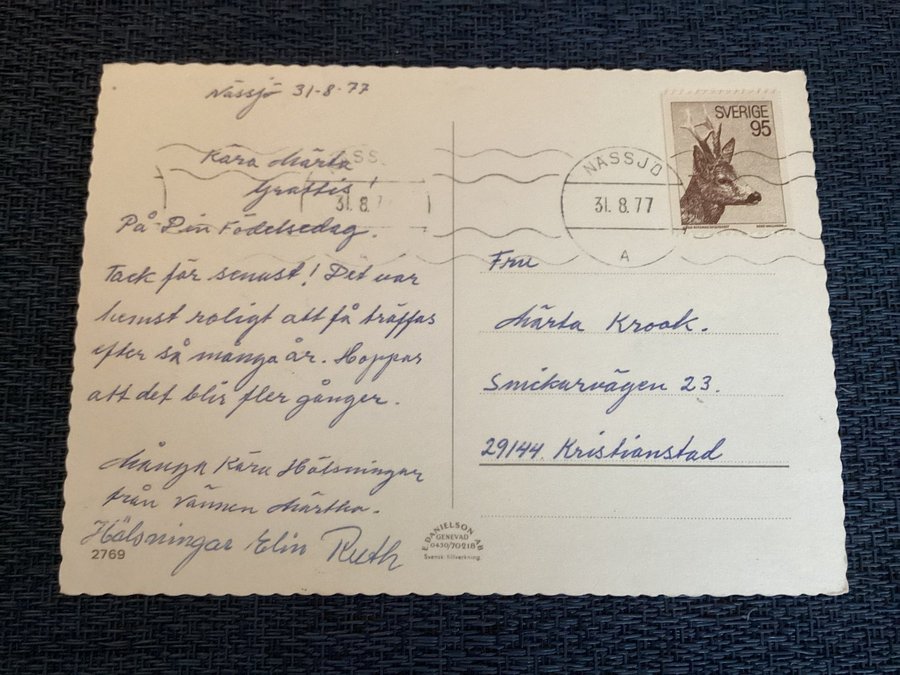 Nässjö 31-8-77
Kära Märta
Grattis!
På Din Födelsedag.
Tack för senast! Det var
hemst roligt att få träffas
efter så många år. Hoppas
att det blir fler gånger.
Många Kära Hälsningar
från Vännen Märtha.
Hälsningar Elin Ruth
2769
E. DANIELSON AB
GENEVAD
0430/70218
Svensk tillverkning.
SVERIGE
95
NÄSSJÖ
31. 8. 77
A
31. 8. 7
Fru
Märta Krook.
29144 Kristianstad